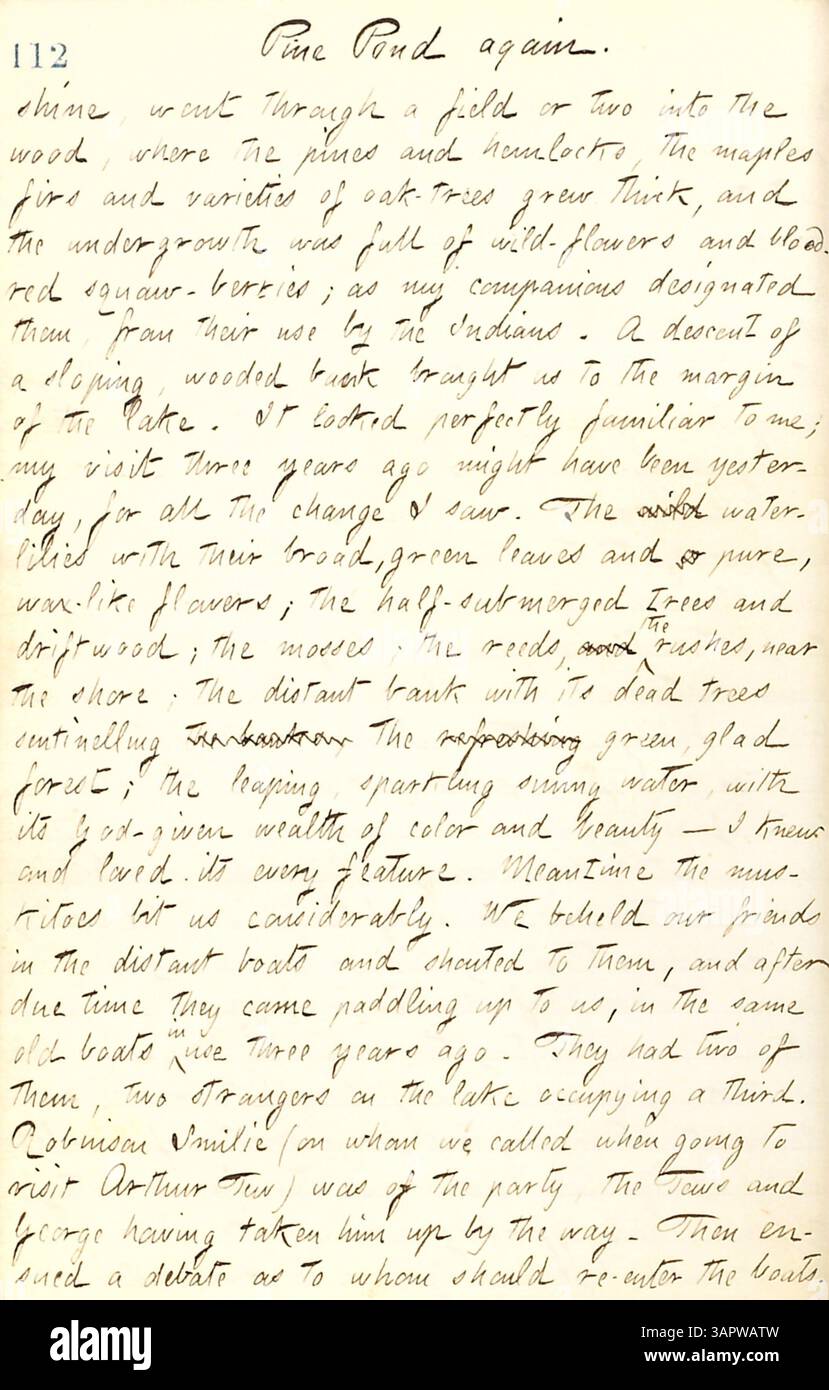 112
Pine Pond again.
shine, went through a field or two into the
wood, where the pines and hemlocks, the maples
firs and varieties of oak-trees grew thick, and
the undergrowth was full of wild-flowers and blood-
red squaw-berries; as my companions designated
them, from their use by the Indians. A descent of
a sloping, wooded bank brought us to the margin
of the lake. It looked perfectly familiar to me;
my visit three years ago might have been yester-
day, for all the change I saw. The wild water-
lilies with their broad, green leaves and pure,
wax-like flowers; the half-submerged trees and
driftwood; the mosses; the reeds, and the rushes, near
the shore; the distant bank with its dead trees
sentinelling the the refreshing green, glad
forest; the leaping, sparkling sunny water, with
its God-given wealth of color and beauty — I knew
and loved its every feature. Meantime the mus-
kitoes bit us considerably. We beheld our friends
in the distant boats and shouted to them, and after
due time they came paddling up to us, in the same
old boats in use three years ago. They had two of
them, two strangers on the lake occupying a third.
Robinson Smilie (on whom we called when going to
visit Arthur Tew) was of the party, the Tews and
George having taken him up by the way. Then en-
sued a debate as to whom should re-enter the boats.
alamy
Image ID: 3APWATW
www.alamy.com